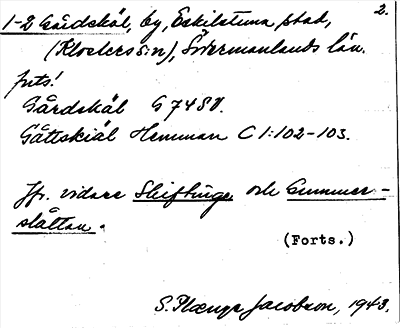 2.
1-2 Gårdskäl, by, Eskilstuna stad,
(Klosters s:n), Södermanlands län.
forts!
Gårdskäl G 74 SV.
Gåttskiäl Hemman C 1:102-103.
Jfr. vidare Skiftinge och Gummer-
slåttan.
(Forts.)
S. Jacobson, 1943.